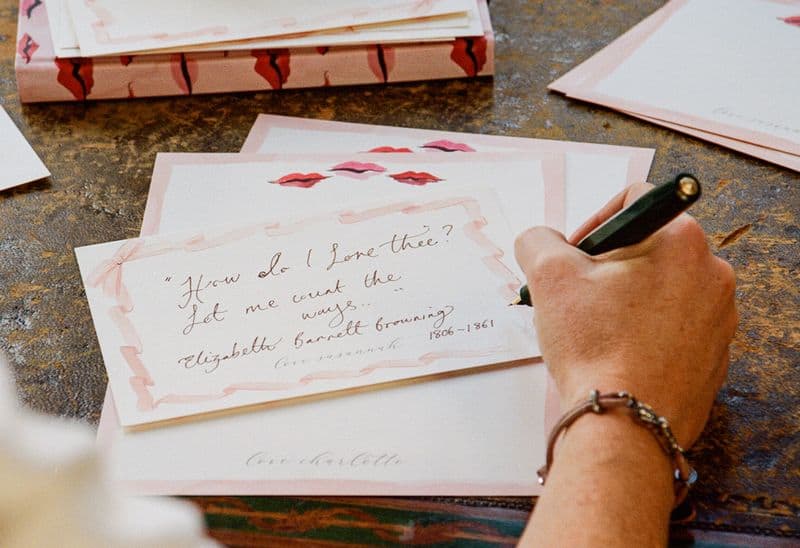 "How do I Love thee?
Let me count the
ways.. "
Elizabeth Barrett Browning
1806-1861
love susannah
love charlotte